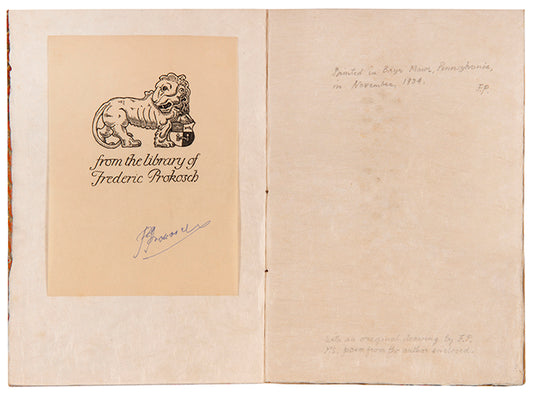 from the library of
Frederic Prokosch
F. Prokosch
Printed in Bryn Mawr, Pennsylvania,
in November, 1934.
F.P.
with an original drawing by F.P.
poem from the author enclosed.